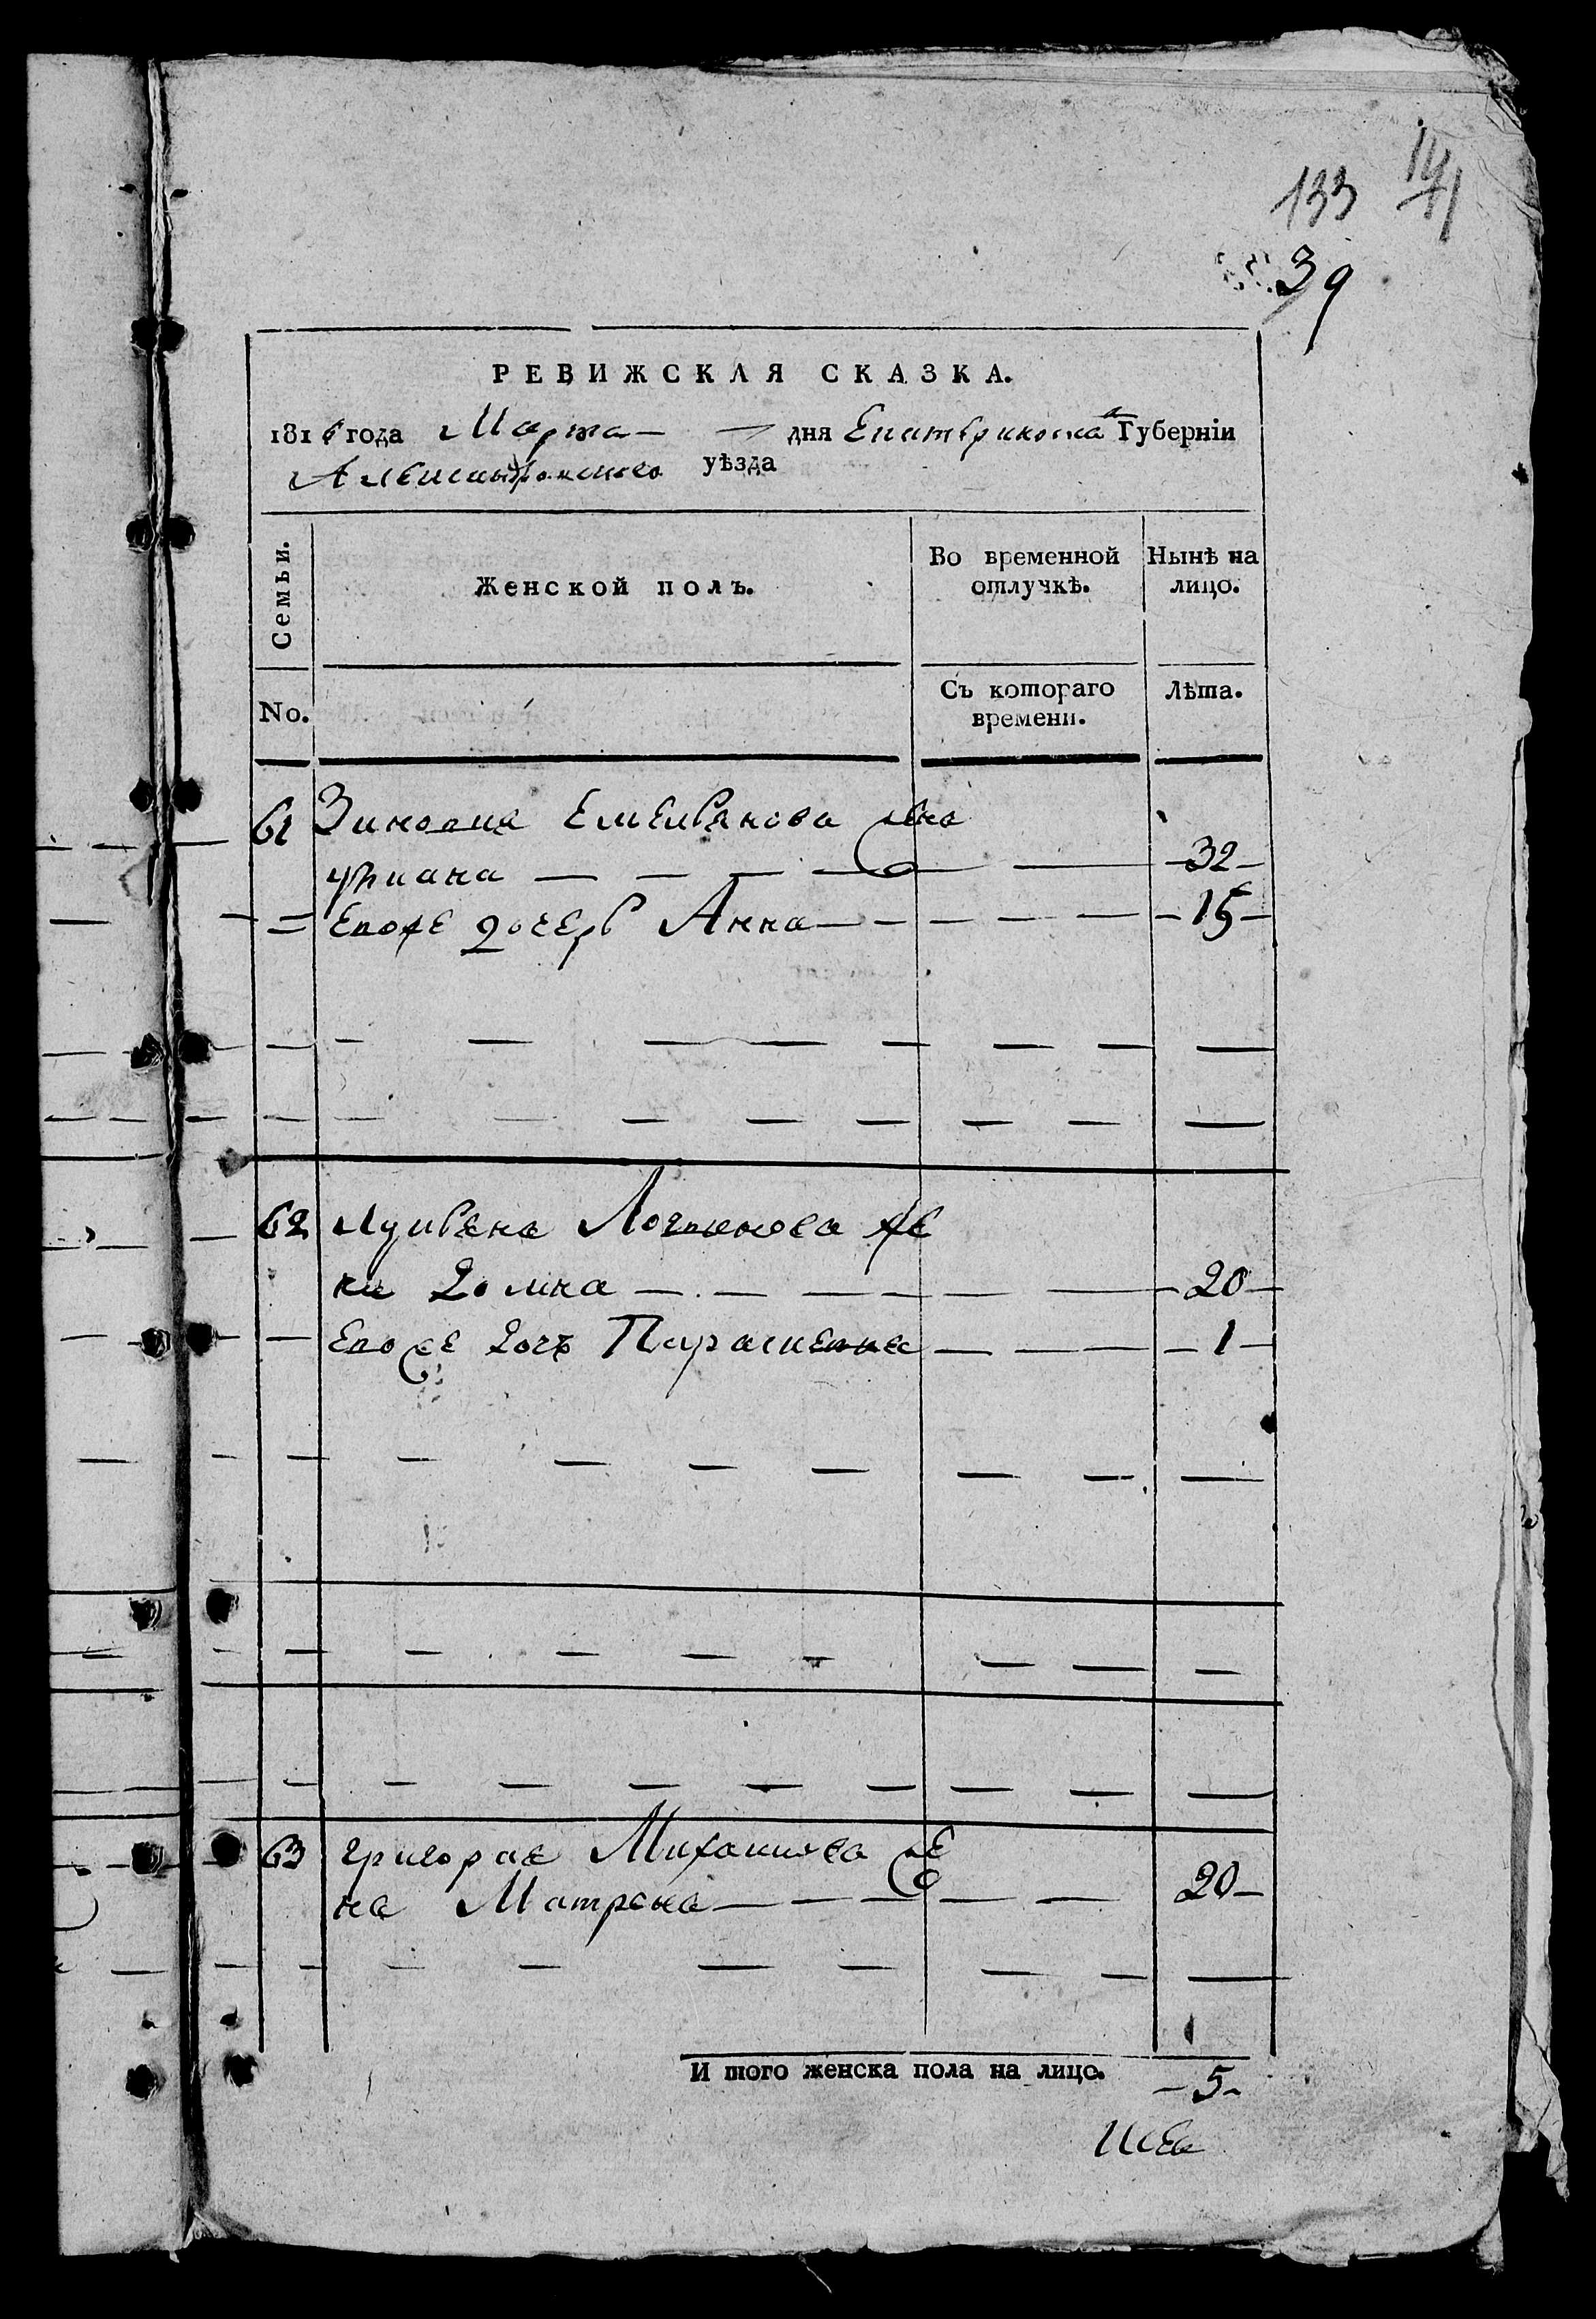 133 141
39
РЕВИЖСКАЯ СКАЗКА.
1816 года Марта — дня Екатеринослав Губерніи
Александровского уѣзда
Семьи.
Женской полъ.
Во временной отлучкѣ.
Нынѣ на лицо.
No.
Съ котораго времени.
Лѣта.
61 Зиновия Емельянова жена
уляна 32
Евоже дочерь Анна 15
62 Лукьяна Логвинова же
на Домна 20
Евоже дочь Парасковия 1
63 григория Михайлова же
на Матрона 20
И того женска пола на лицо. 5